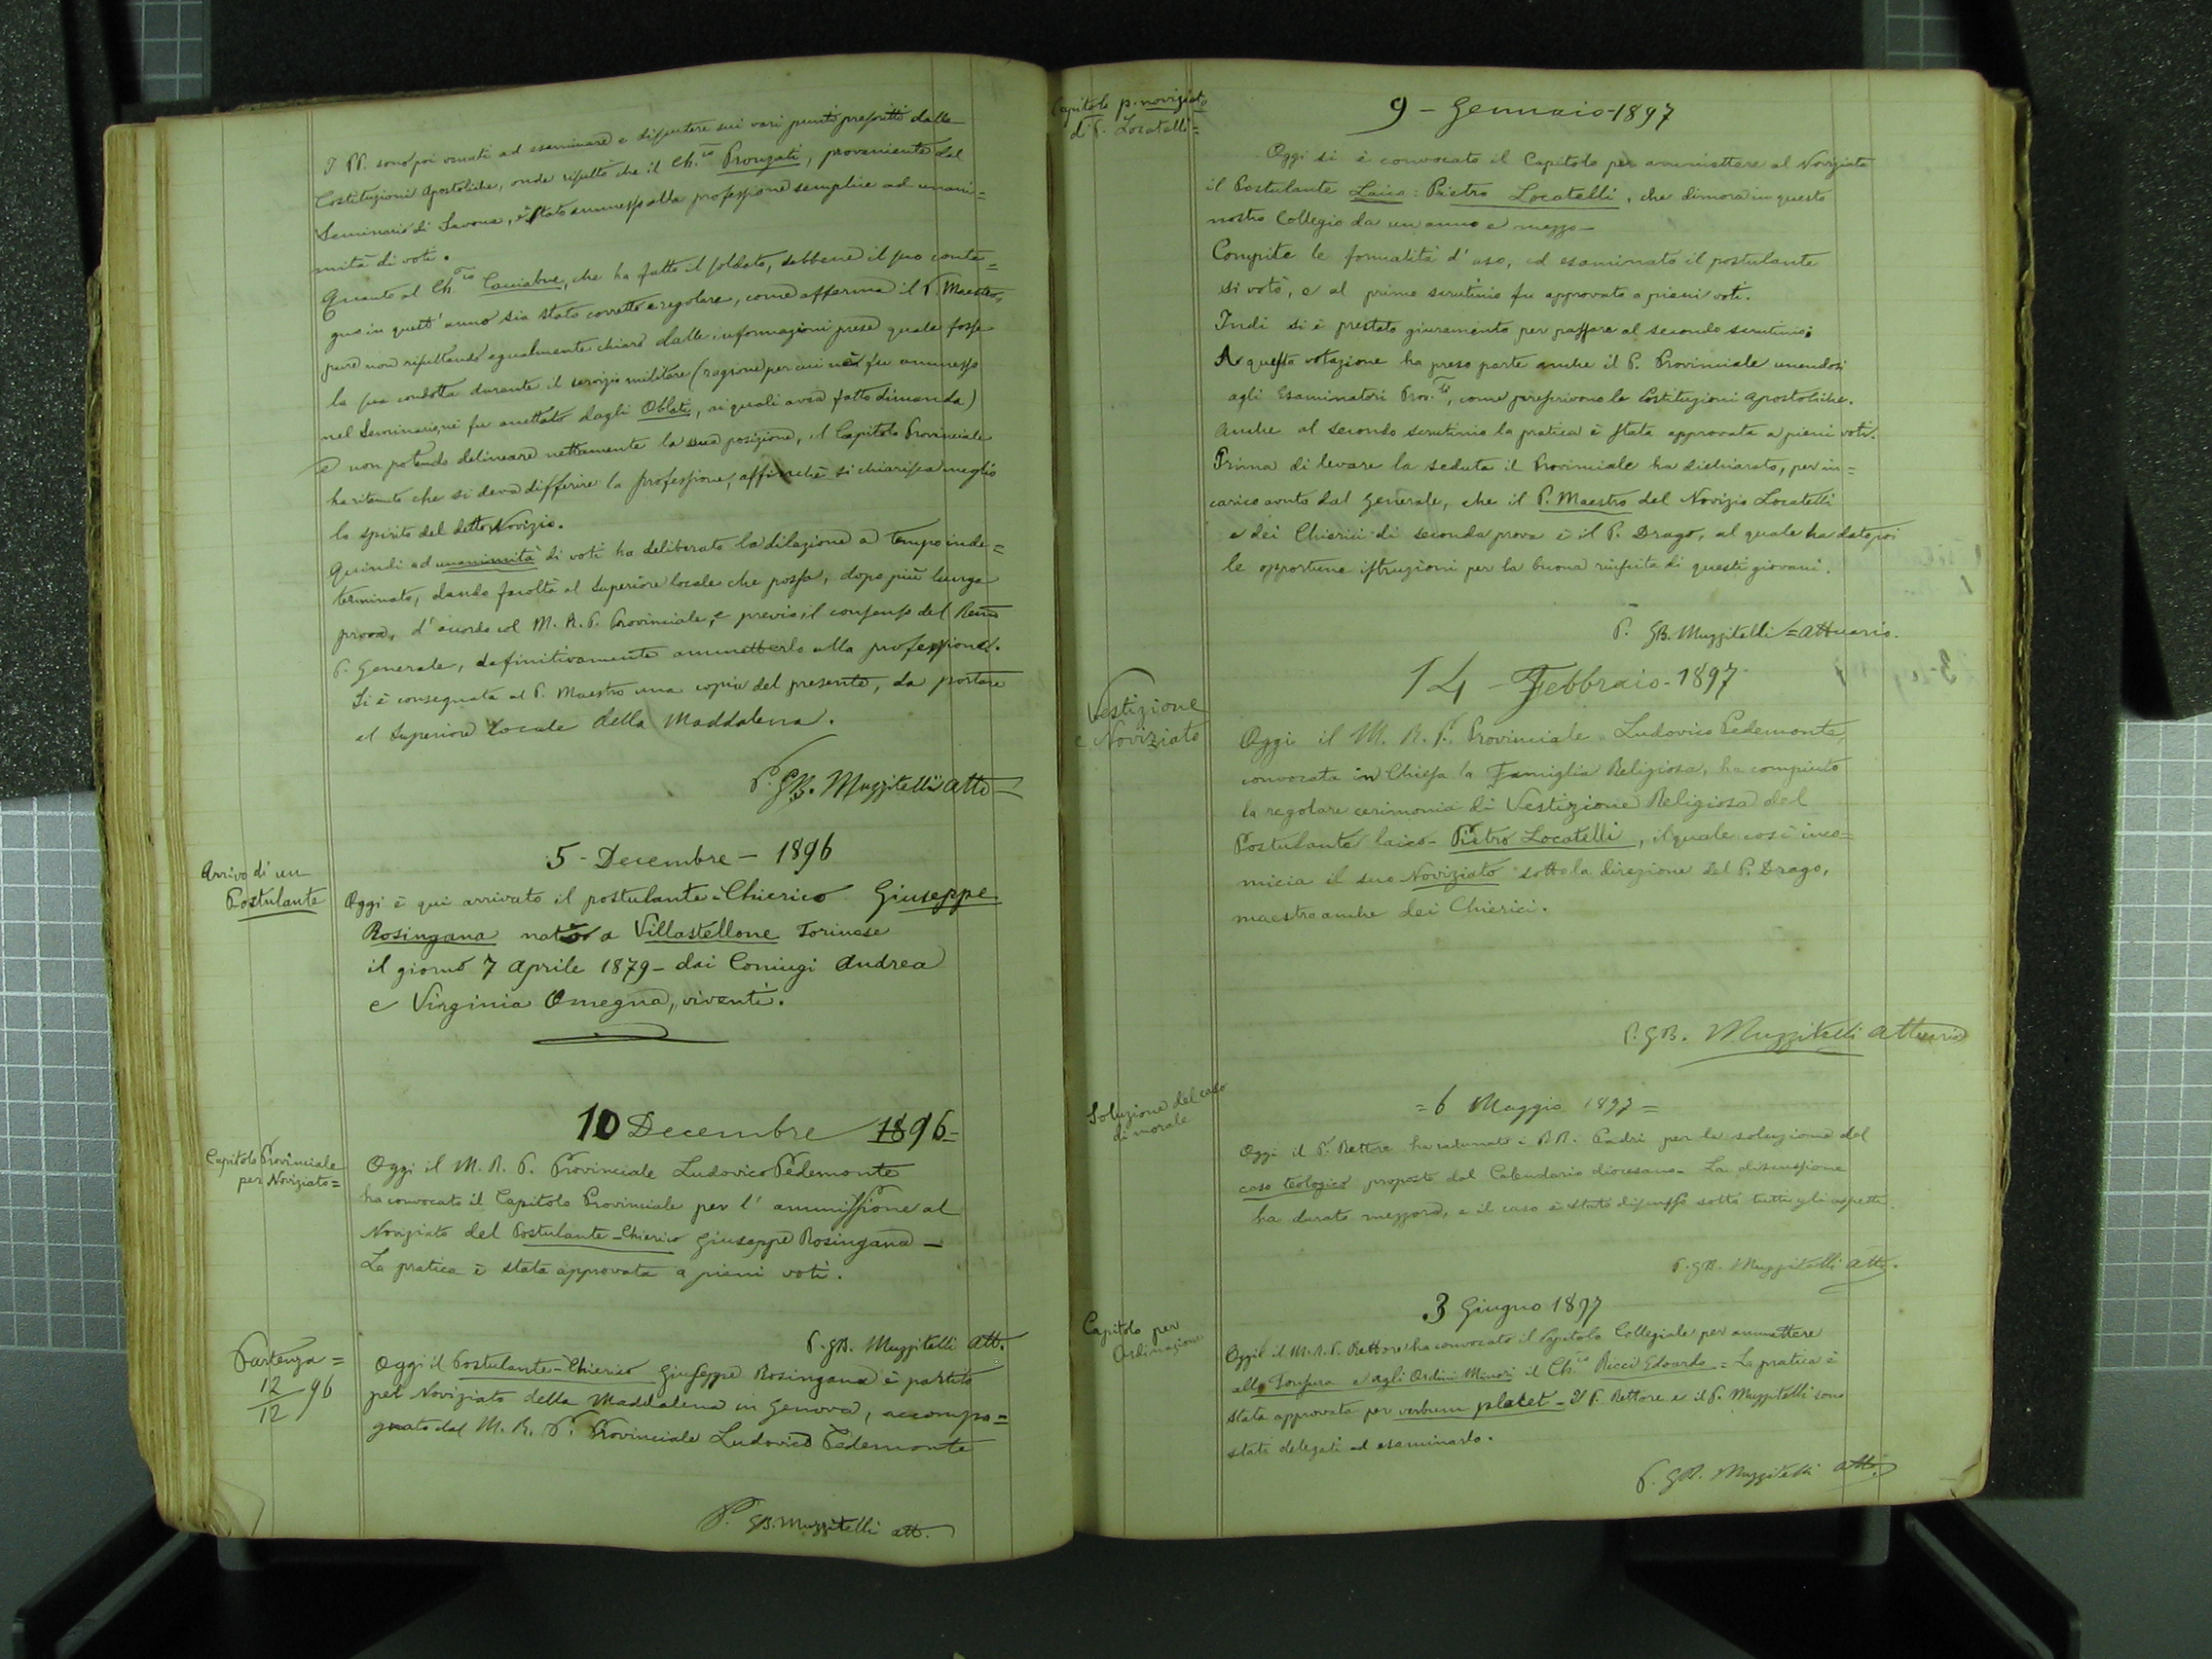 I PP. sono poi venuti ad esaminare e discutere sui vari punti prescritti dalle
Costituzioni Apostoliche, onde risultò che il Ch.co Pronzati, proveniente dal
Seminario di Savona, è stato ammesso alla professione semplice ad unani=
mità di voti.
Quanto al Ch.co, che ha fatto il soldato, sebbene il suo conte=
gno in quest'anno sia stato corretto e regolare, come afferma il P. Maestro,
pure non risultando egualmente chiaro dalle informazioni prese quale fosse
la sua condotta durante il servizio militare (ragione per cui nè fu ammesso
nel Seminario, nè fu accettato dagli Oblati, ai quali avea fatto dimanda)
e non potendo delineare nettamente la sua posizione, il Capitolo Provinciale
ha ritenuto che si deva differire la professione, affinchè si chiarisca meglio
lo spirito del detto Novizio.
Quindi ad unanimità di voti ha deliberato la dilazione a tempo inde=
terminato, dando facoltà al Superiore locale che possa, dopo più lunga
prova, d'accordo col M. R. P. Provinciale, e previo il consenso del Rev̄mo
P. Generale, definitivamente ammetterlo alla professione.
Si è consegnata al P. Maestro una copia del presente, da portare
al Superiore Locale della Maddalena.
P. GB. Muzzitelli atto
5 - Decembre - 1896
Arrivo di un
Postulante
Oggi è qui arrivato il postulante-Chierico Giuseppe
Rosingana nato a Villastellone Torinese
il giorno 7 Aprile 1879 - dai Coniugi Andrea
e Virginia Omegna, viventi.
10 Decembre 1896-
Capitolo Provinciale
per Noviziato=
Oggi il M. R. P. Provinciale Ludovico Pedemonte
ha convocato il Capitolo Provinciale per l'ammissione al
Noviziato del Postulante-Chierico Giuseppe Rosingana -
La pratica è stata approvata a pieni voti.
P. GB. Muzzitelli Att.
Partenza =
12/12 96
Oggi il Postulante-Chierico Giuseppe Rosingana è partito
pel Noviziato della Maddalena in Genova, accompa=
gnato dal M. R. P. Provinciale Ludovico Pedemonte
P. GB. Muzzitelli att.
Capitolo p. noviziato
di P. Locatelli=
9 - Gennaio - 1897
Oggi si è convocato il Capitolo per ammettere al Noviziato
il Postulante Laico: Pietro Locatelli, che dimora in questo
nostro Collegio da un anno e mezzo -
Compite le formalità d'uso, ed esaminato il postulante
si votò, e al primo scrutinio fu approvato a pieni voti.
Indi si è prestato giuramento per passare al secondo scrutinio;
A questa votazione ha preso parte anche il P. Provinciale unendosi
agli Esaminatori Prov.li, come prescrivono le Costituzioni Apostoliche.
Anche al secondo scrutinio la pratica è stata approvata a pieni voti.
Prima di levare la seduta il Provinciale ha dichiarato, per in=
carico avuto dal Generale, che il P. Maestro del Novizio Locatelli
e dei Chierici di seconda prova è il P. Drago, al quale ha dato poi
le opportune istruzioni per la buona riuscita di questi giovani.
P. GB. Muzzitelli = Attuario.
14 - Febbraio - 1897
Vestizione
e Noviziato
Oggi il M. R. P. Provinciale Ludovico Pedemonte,
convocata in Chiesa la Famiglia Religiosa, ha compiuto
la regolare cerimonia di Vestizione Religiosa del
Postulante laico - Pietro Locatelli, il quale così inco=
mincia il suo Noviziato sotto la direzione del P. Drago,
maestro anche dei Chierici.
P. GB. Muzzitelli Attuario
Soluzione del caso
di morale
= 6 Maggio 1897 =
Oggi il P. Rettore ha radunati i R.R. Padri per la soluzione del
caso teologico proposto dal Calendario diocesano - La discussione
ha durato mezzora, e il caso è stato discusso sotto tutti gli aspetti.
P. GB. Muzzitelli Atto.
3 Giugno 1897
Capitolo per
Ordinazione
Oggi il M. R. P. Rettore ha convocato il Capitolo Collegiale per ammettere
alla Tonsura e agli Ordini Minori il Ch.co Ricci Edoardo = La pratica è
stata approvata per verbum placet - Il P. Rettore e il P. Muzzitelli sono
stati delegati ad esaminarlo.
P. GB. Muzzitelli atto.